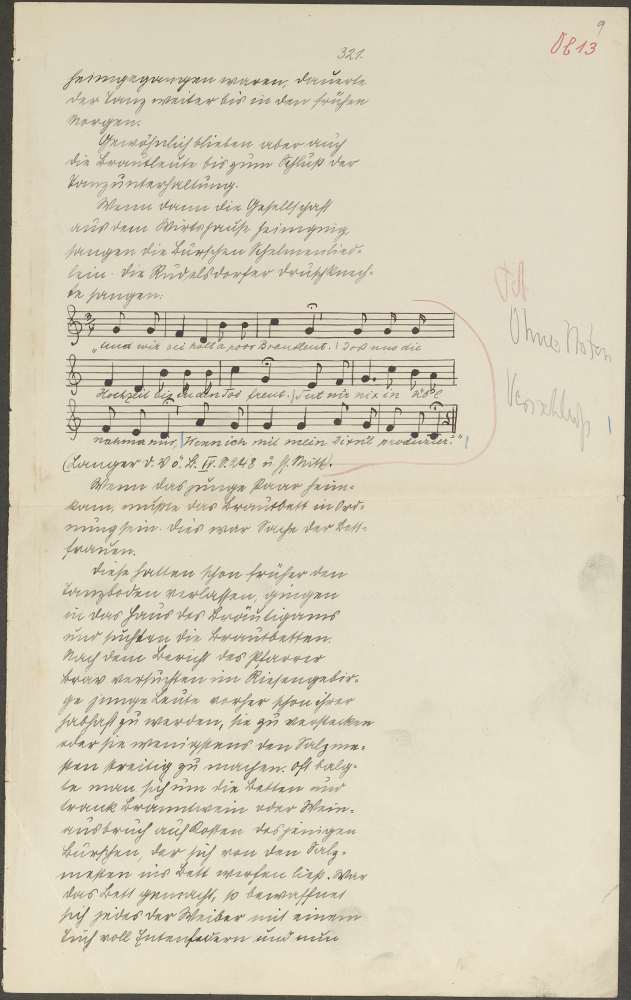 9
Ob13
321.
heimgegangen waren, dauerte
der Tanz weiter bis in den frühen
Morgen.
Gewöhnlich blieben aber auch
die Brautleute bis zum Schluß der
Tanzunterhaltung.
Wenn dann die Gesellschaft
aus dem Wirtshause heimging,
sangen die Burschen Schelmenlied-
lein. Die Rudelsdorfer Druschknech-
te sangen:
"Und wie sei holt a poor Brautleut. Doß uns die
Hochzeit bis in den Tod freut. Tut mir nix in
nahma nur, Wenn ich mit mein Dirnl
(Langer d. V. ö. B. IV. S. 248 u. s. Mitt).
Wenn das junge Paar heim-
kam, mußte das Brautbett in Ord-
nung sein. Dies war Sache der Bett-
frauen.
Diese hatten schon früher den
Tanzboden verlassen, gingen
in das Haus des Bräutigams
und suchten die Brautbetten.
Nach dem Bericht des Pfarrer
Brav versuchten im Riesengebir-
ge junge Leute vorher schon ihrer
habhaft zu werden, sie zu verstecken
oder sie wenigstens den Salzme-
sten streitig zu machen. Oft balg-
te man sich um die Betten und
trank Branntwein oder Wein-
ausbruch auf Kosten desjenigen
Burschen, der sich von den Salz-
mesten ins Bett werfen ließ. War
das Bett gemacht, so bewaffnet
sich jedes der Weiber mit einem
Tuch voll Entenfedern und nun
Ohne Noten